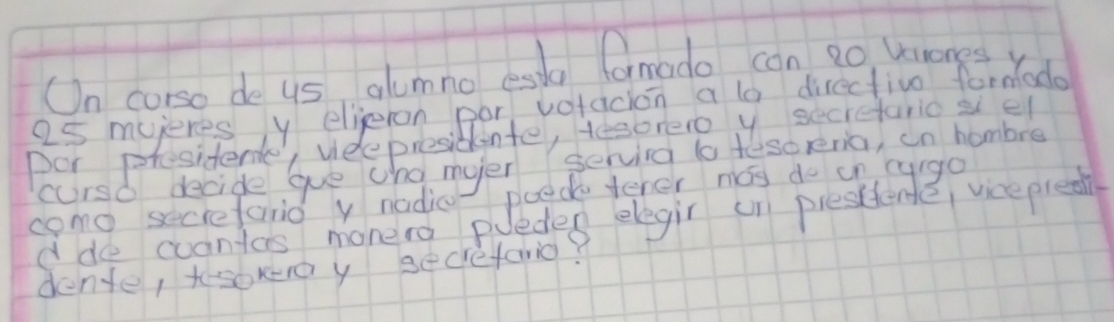 Un curso de 45 alumno esta formado con 20 Varones y
25 mujeres, y elijeron por votación a la directiva formado
por presidente, vicepresidente, tesorero y secretario si el
curso decide que una mujer servira la tesoreria, un hombre
como secretario y nadie puede tener más de un cargo
d de cuantas manera pueden elegir un presidente, vicepresi-
dente, tesorera y secretario?